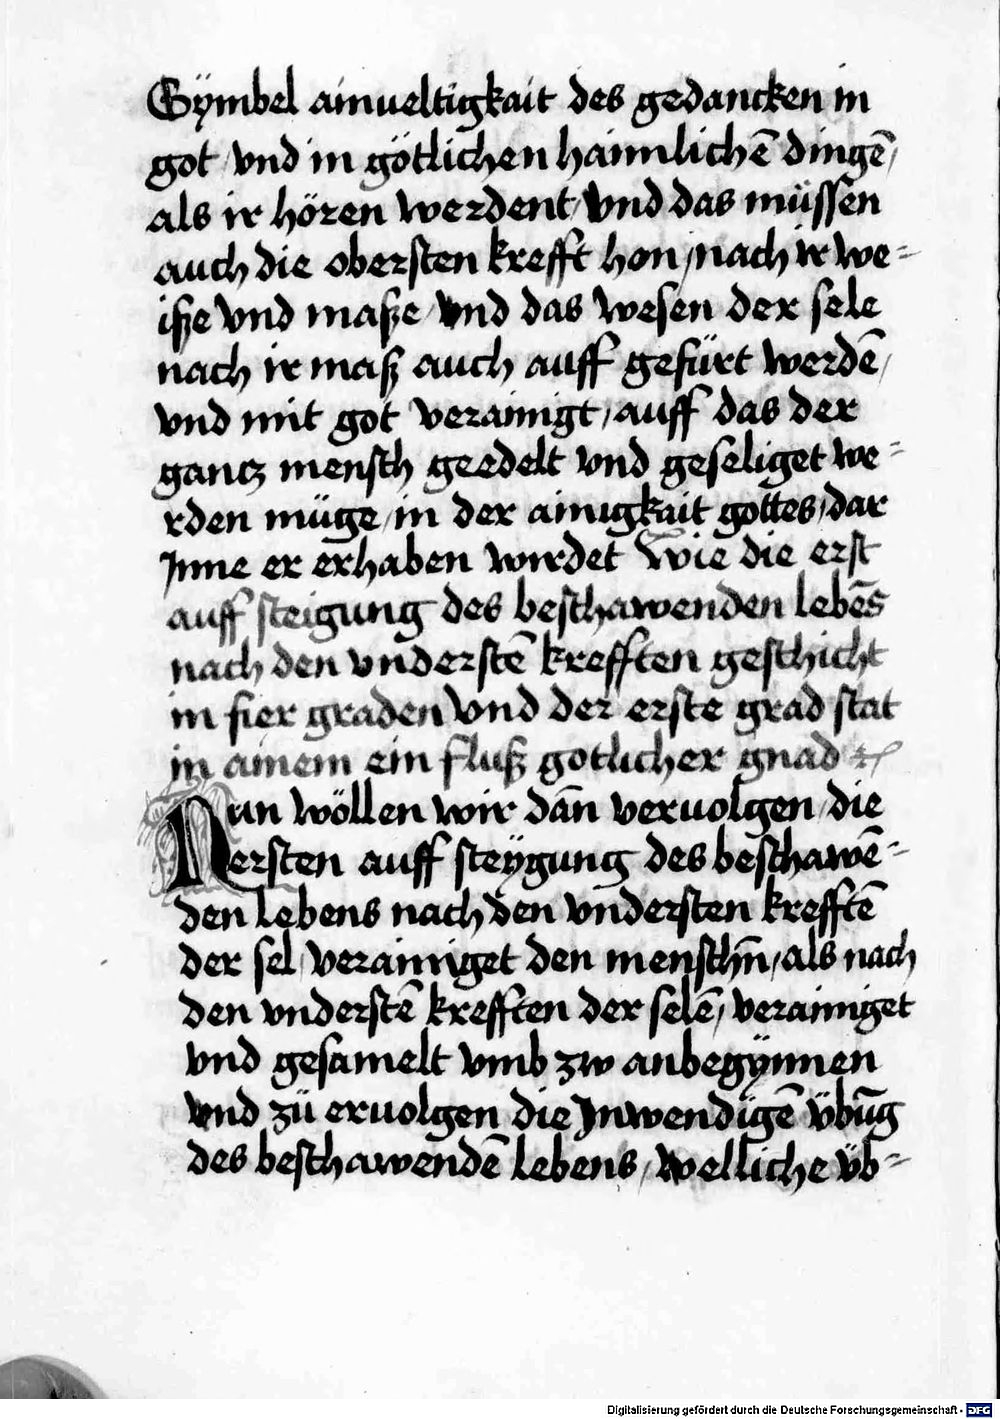 Gÿmbel ainueltigkait des gedancken in
got / vnd in götlichen haimlichē dingē /
als ir hören werdent / vnd das müssen
auch die obersten krefft hon / nach ir we-
iße vnd maße / vnd das wesen der sele
nach ir maß auch auff gefürt werdē /
vnd mit got verainigt / auff das der
gantz mensch geedelt vnd geseliget we-
rden müge / in der ainigkait gottes / dar
Jnne er erhaben wirdet Wie die erst
auff steigung des beschawenden lebēs
nach den vnderstē krefften geschicht
in fier graden vnd der erste grad stat
in ainem ein fluß gotlicher gnad ⁊c
Nun wöllen wir dān veruolgen / die
ersten auff steÿgung des beschawē-
den lebens nach den vndersten krefftē
der sel / verainiget den menschn̄ / als nach
den vnderstē krefften der selē / verainiget
vnd gesamelt vmb zw anbegÿnnen
vnd zü eruolgen die Jnwendigē v̈būg
des beschawendē lebens / welliche v̈b-
Digitalisierung gefördert durch die Deutsche Forschungsgemeinschaft - DFG